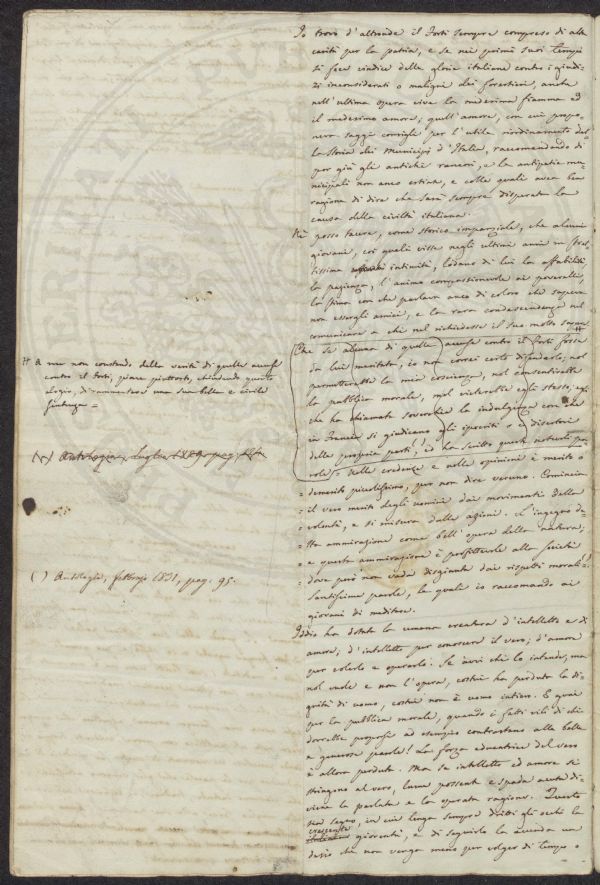 Io trovo d'altronde il Forti sempre compreso di alta
carità per la patria, e se nei primi suoi tempi
si fece vindice delle glorie italiane contro i giudi-
zi inconsiderati o maligni dei forestieri, anche
nell'ultima opera vive la medesima fiamma ed
il medesimo amore; quell'amore, con cui propo-
neva saggi consigli per l'utile riordinamento del-
la Storia dei Municipj d'Italia, raccomandando di
por giù gli antichi rancori, e le antipatie mu-
nicipali non anco estinte, e colle quali avea ben
ragione di dire che sarà sempre disperata la
causa della civiltà italiana.
Nè posso tacere, come storico imparziale, che alcuni
giovani, coi quali visse negli ultimi anni in stret-
tissima intimità, lodano di lui la affabilità
la pazienza, l'animo compassionevole ai poverelli,
la stima con che parlava anco di coloro che sapeva
non essergli amici, e la rara condiscendenza nel
comunicare a chi nel richiedesse il suo molto sapere #
Che se alcuna di quelle accuse contro il Forti fosse
da lui meritata, io non correi certo difenderlo; nol
permetterebbe la mia coscienza, nol consentirebbe
la pubblica morale, nol vorrebbe egli stesso, egli
che ha chiamata soverchia la indulgenza con che
in Francia si giudicano gli ipocriti o i disertori
delle proprie parti; ed ha scritto queste notevoli pa-
role = Nelle credenze e nelle opinioni è merito o
= demerito piccolissimo, per non dire veruno. Comincia
= il vero merito degli uomini dai movimenti della
= volontà, e si misura dalle azioni. L'ingegno de-
= sta ammirazione come bell'opera della natura;
= e questa ammirazione è profittevole alla società
= dove però non vada disgiunta dai rispetti morali ( )
Santissime parole, le quali io raccomando ai
giovani di meditare.
Iddio ha dotato la umana creatura d'intelletto e di
amore; d'intelletto per conoscere il vero; d'amore
per volerlo e operarlo. Se avvi chi lo intende, ma
nol vuole e non l'opera, costui ha perduto la di-
gnità di uomo, costui non è uomo intiero. E guai
per la pubblica morale, quando i fatti vili di chi
dovrebbe proporsi ad esempio contrastano alle belle
e generose parole! La forza educatrice del vero
è allora perduta. Ma se intelletto ed amore si
stringono al vero, lume possente e spada acuta di-
viene la parlata e la operata ragione. Questo
sia segno, in cui tenga sempre dritti gli occhi la
crescente gioventù, e di seguirlo la accenda un
desio che non venga meno per volger di tempo o
# a me non constando della verità di quelle accuse
contro il Forti, piace piuttosto, chiudendo questo
elogio, di rammentare una sua bella e civile
sentenza =
( ) Antologia, Luglio 1829. pag.
( ) Antologia, febbrajo 1831, pag. 95.